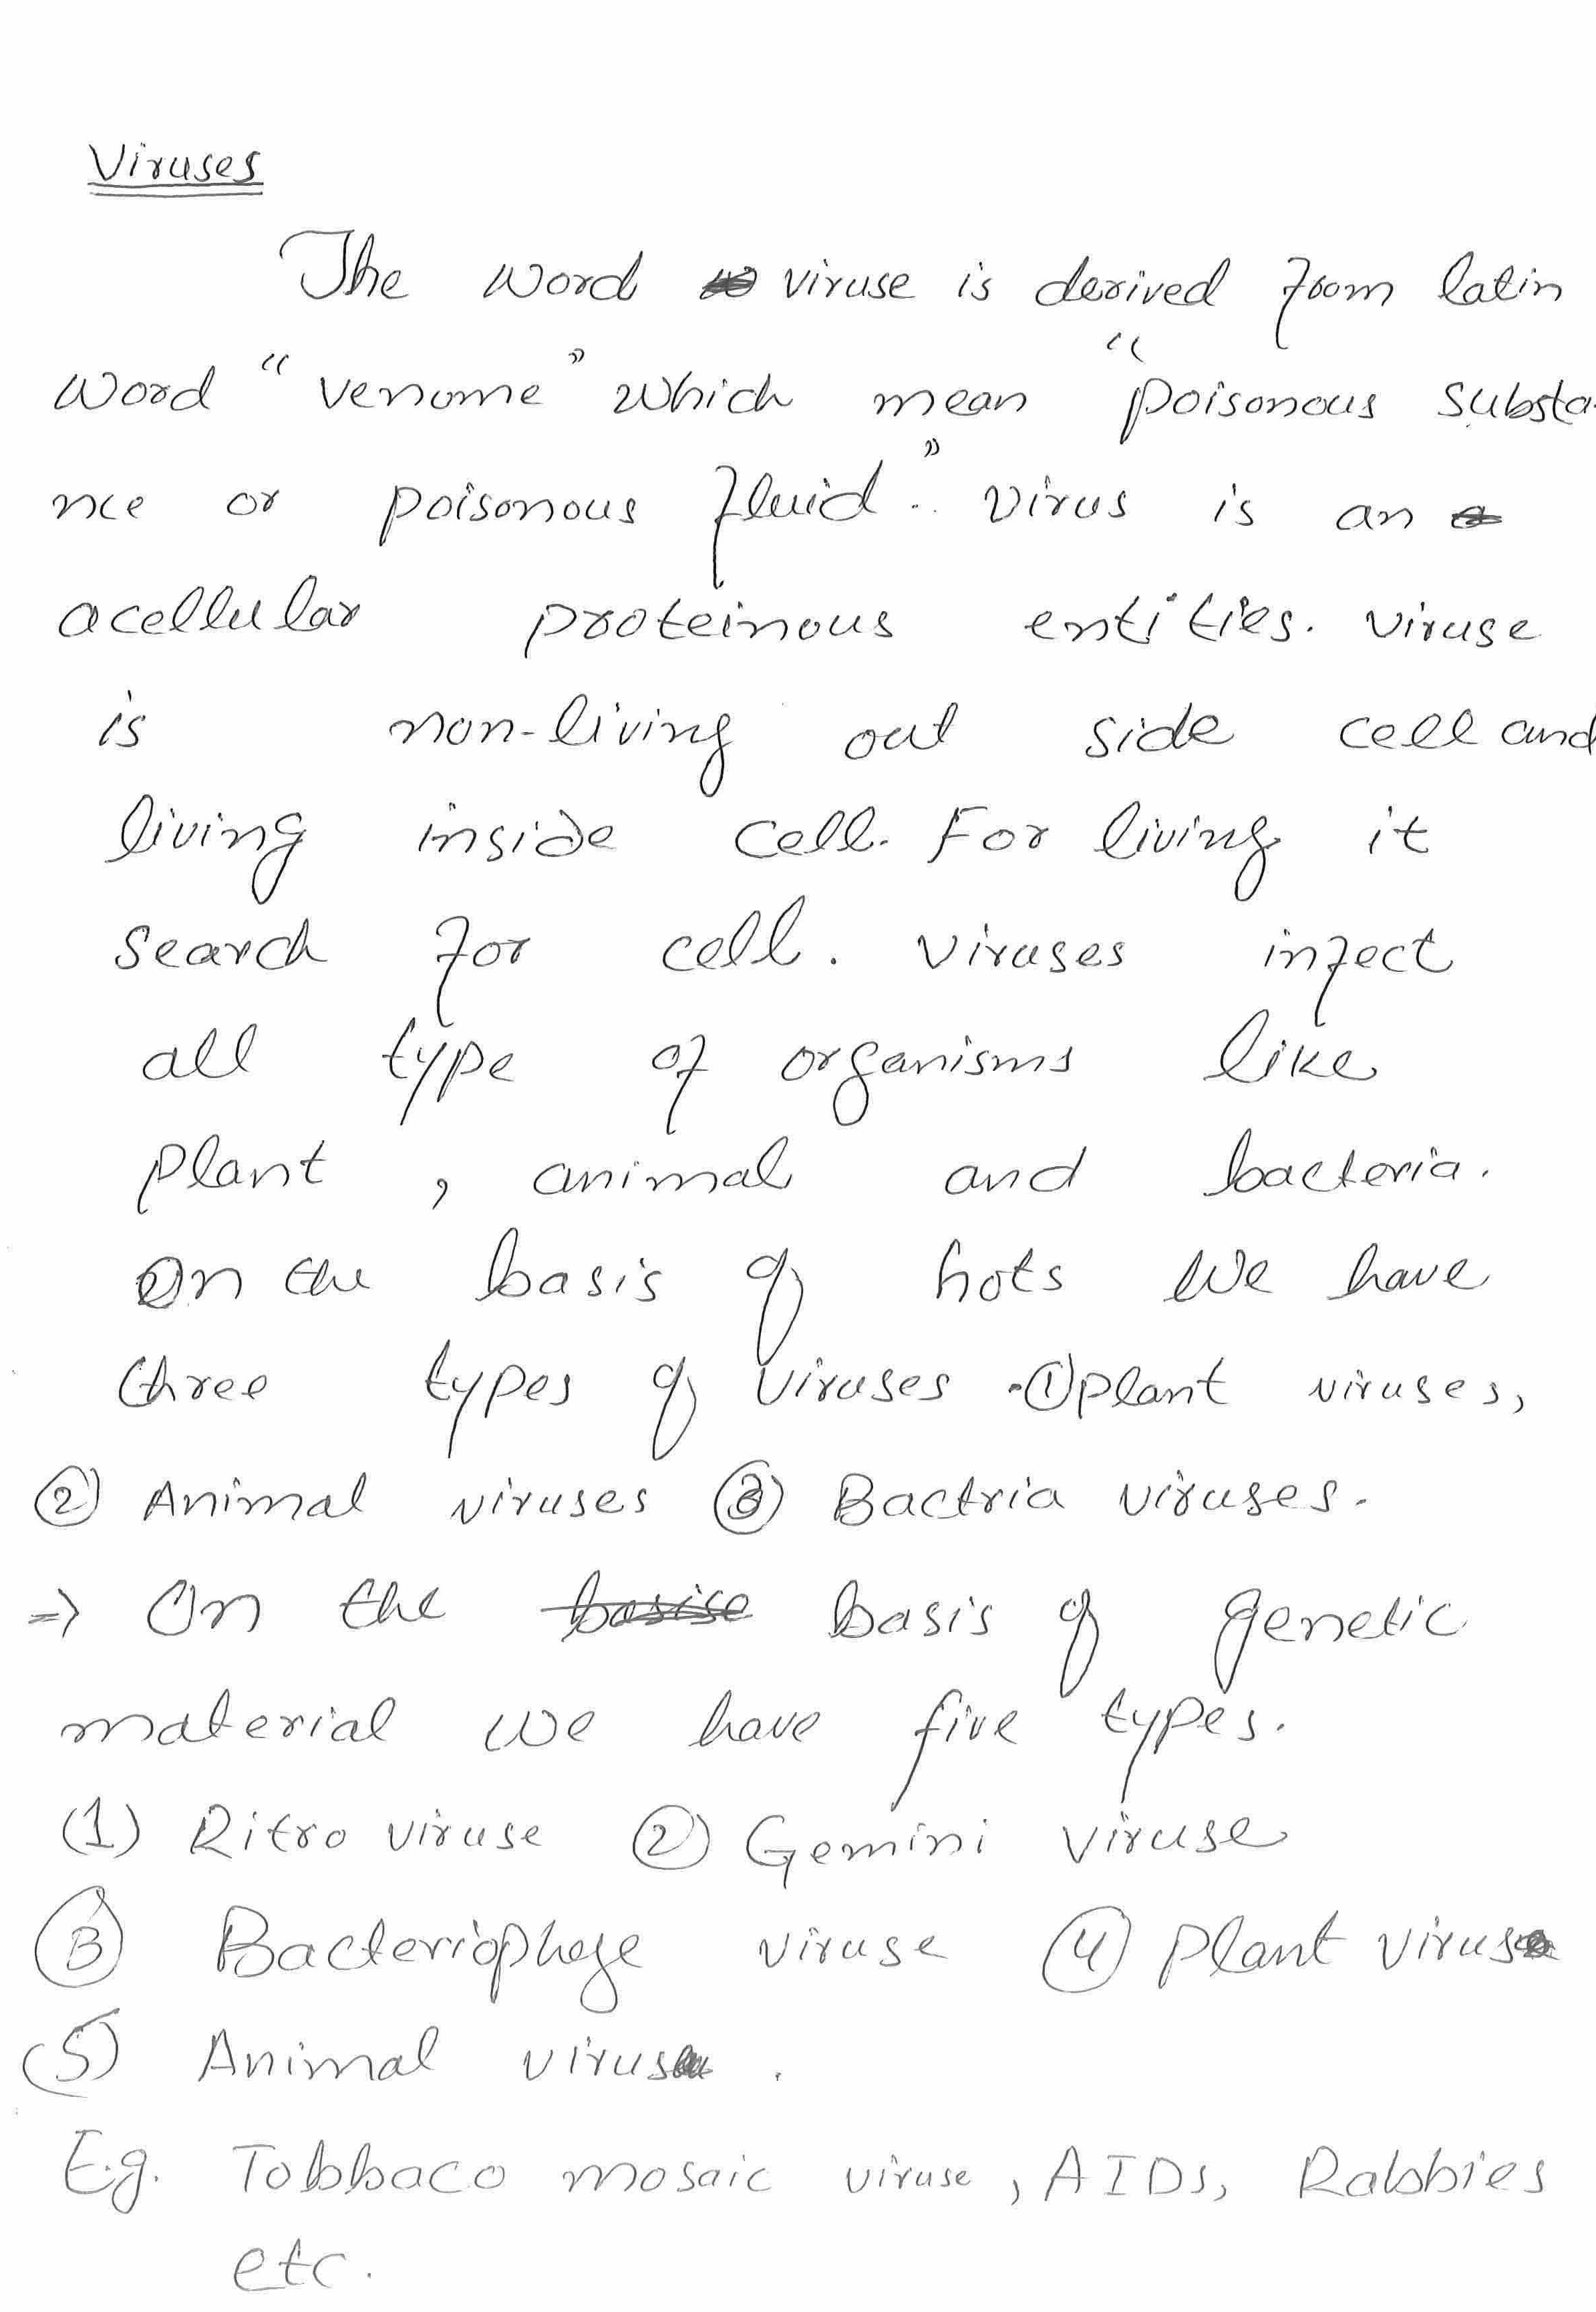 Viruses
The word viruse is derived from latin
word "venome" which mean "poisonous substa-
nce or poisonous fluid". virus is an
acellular proteinous entities. viruse
is non-living out side cell and
living inside cell. For living it
search for cell. viruses infect
all type of organisms like
plant , animal and bacteria.
On the basis of hots we have
three types of viruses .① plant viruses,
② Animal viruses ③ Bactria viruses.
⇒ On the basise basis of genetic
material we have five types.
(1) Ritro viruse ② Gemini viruse
③ Bacteriophage viruse ④ plant virus
(5) Animal virus .
E.g. Tobbaco mosaic viruse , AIDs, Rabbies
etc.